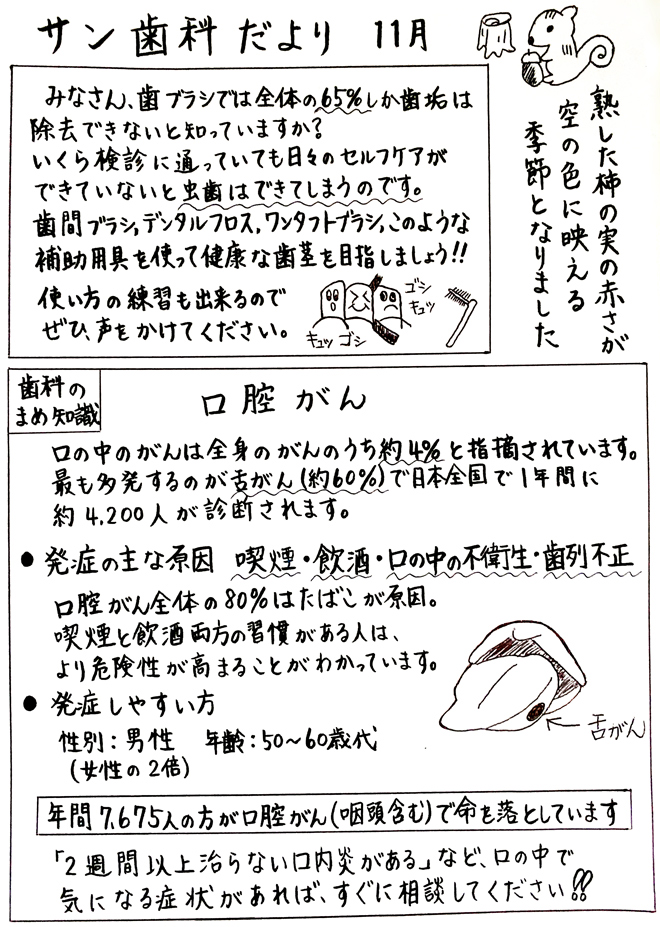 サン歯科だより 11月
熟した柿の実の赤さが
空の色に映える
季節となりました
みなさん、歯ブラシでは全体の65%しか歯垢は
除去できないと知っていますか?
いくら検診に通っていても日々のセルフケアが
できていないと虫歯はできてしまうのです。
歯間ブラシ,デンタルフロス,ワンタフトブラシ,このような
補助用具を使って健康な歯茎を目指しましょう!!
使い方の練習も出来るので
ぜひ、声をかけてください。
ゴシ
キュッ
キュッ ゴシ
歯科の
まめ知識
口腔がん
口の中のがんは全身のがんのうち約4%と指摘されています。
最も多発するのが舌がん(約60%)で日本全国で1年間に
約4,200人が診断されます。
● 発症の主な原因 喫煙・飲酒・口の中の不衛生・歯列不正
口腔がん全体の80%はたばこが原因。
喫煙と飲酒両方の習慣がある人は、
より危険性が高まることがわかっています。
● 発症しやすい方
性別:男性 年齢:50～60歳代
(女性の2倍)
舌がん
年間7,675人の方が口腔がん(咽頭含む)で命を落としています
「2週間以上治らない口内炎がある」など、口の中で
気になる症状があれば、すぐに相談してください!!